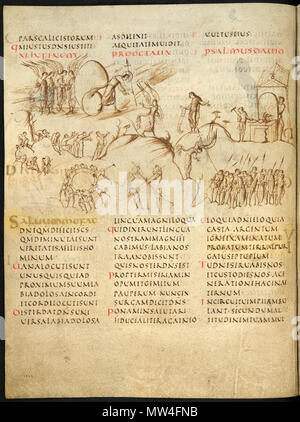 PARSCALICISEORUM
QMIUSTUSDNSIUSTITI
XI INFINEM
ASDILEXIT
AEQUITATEMUIDIT
PROOCTAUA
UULTUSEIUS
PSALMUSDAUID
SALUUMMEFAC
DNEQMDEFICITSCS
QMDIMINUTAESUNT
UERITATESAFILIISHO
MINUM
UANALOCUTISUNT
UNUSQUISQUEAD
PROXIMUMSUUMLA
BIADOLOSAINCORDE
ETCORDELOCUTISUNT
DISPERDATDNSUNI
UERSALABIADOLOSA
LINGUAMAGNILOQUA
QUIDIXERUNTLINGUA
NOSTRAMMAGNIFI
CABIMUSLABIA
ANOBISSUNT
QUISNOSTERDNSEST
PROPTERMISERIAMIN
OPUMETGEMITUM
PAUPERUMNUNCEX
SURGAMDICITDNS
PONAMINSALUTARI
FIDUCIALITERAGAMINEO
ELOQUIADNIELOQUIA
CASTAARGENTUM
IGNEEXAMINATUM
PROBATUMTERRAEPUR
GATUMSEPTUPLUM
TUDNESERUABISNOS
ETCUSTODIESNOSAGE
NERATIONEHACINAE
TERNUM
INCIRCUITUIMPIIAMBU
LANTSECUNDUMAL
TITUDINEMTUAM
alamy
MW4FNB
www.alamy.com